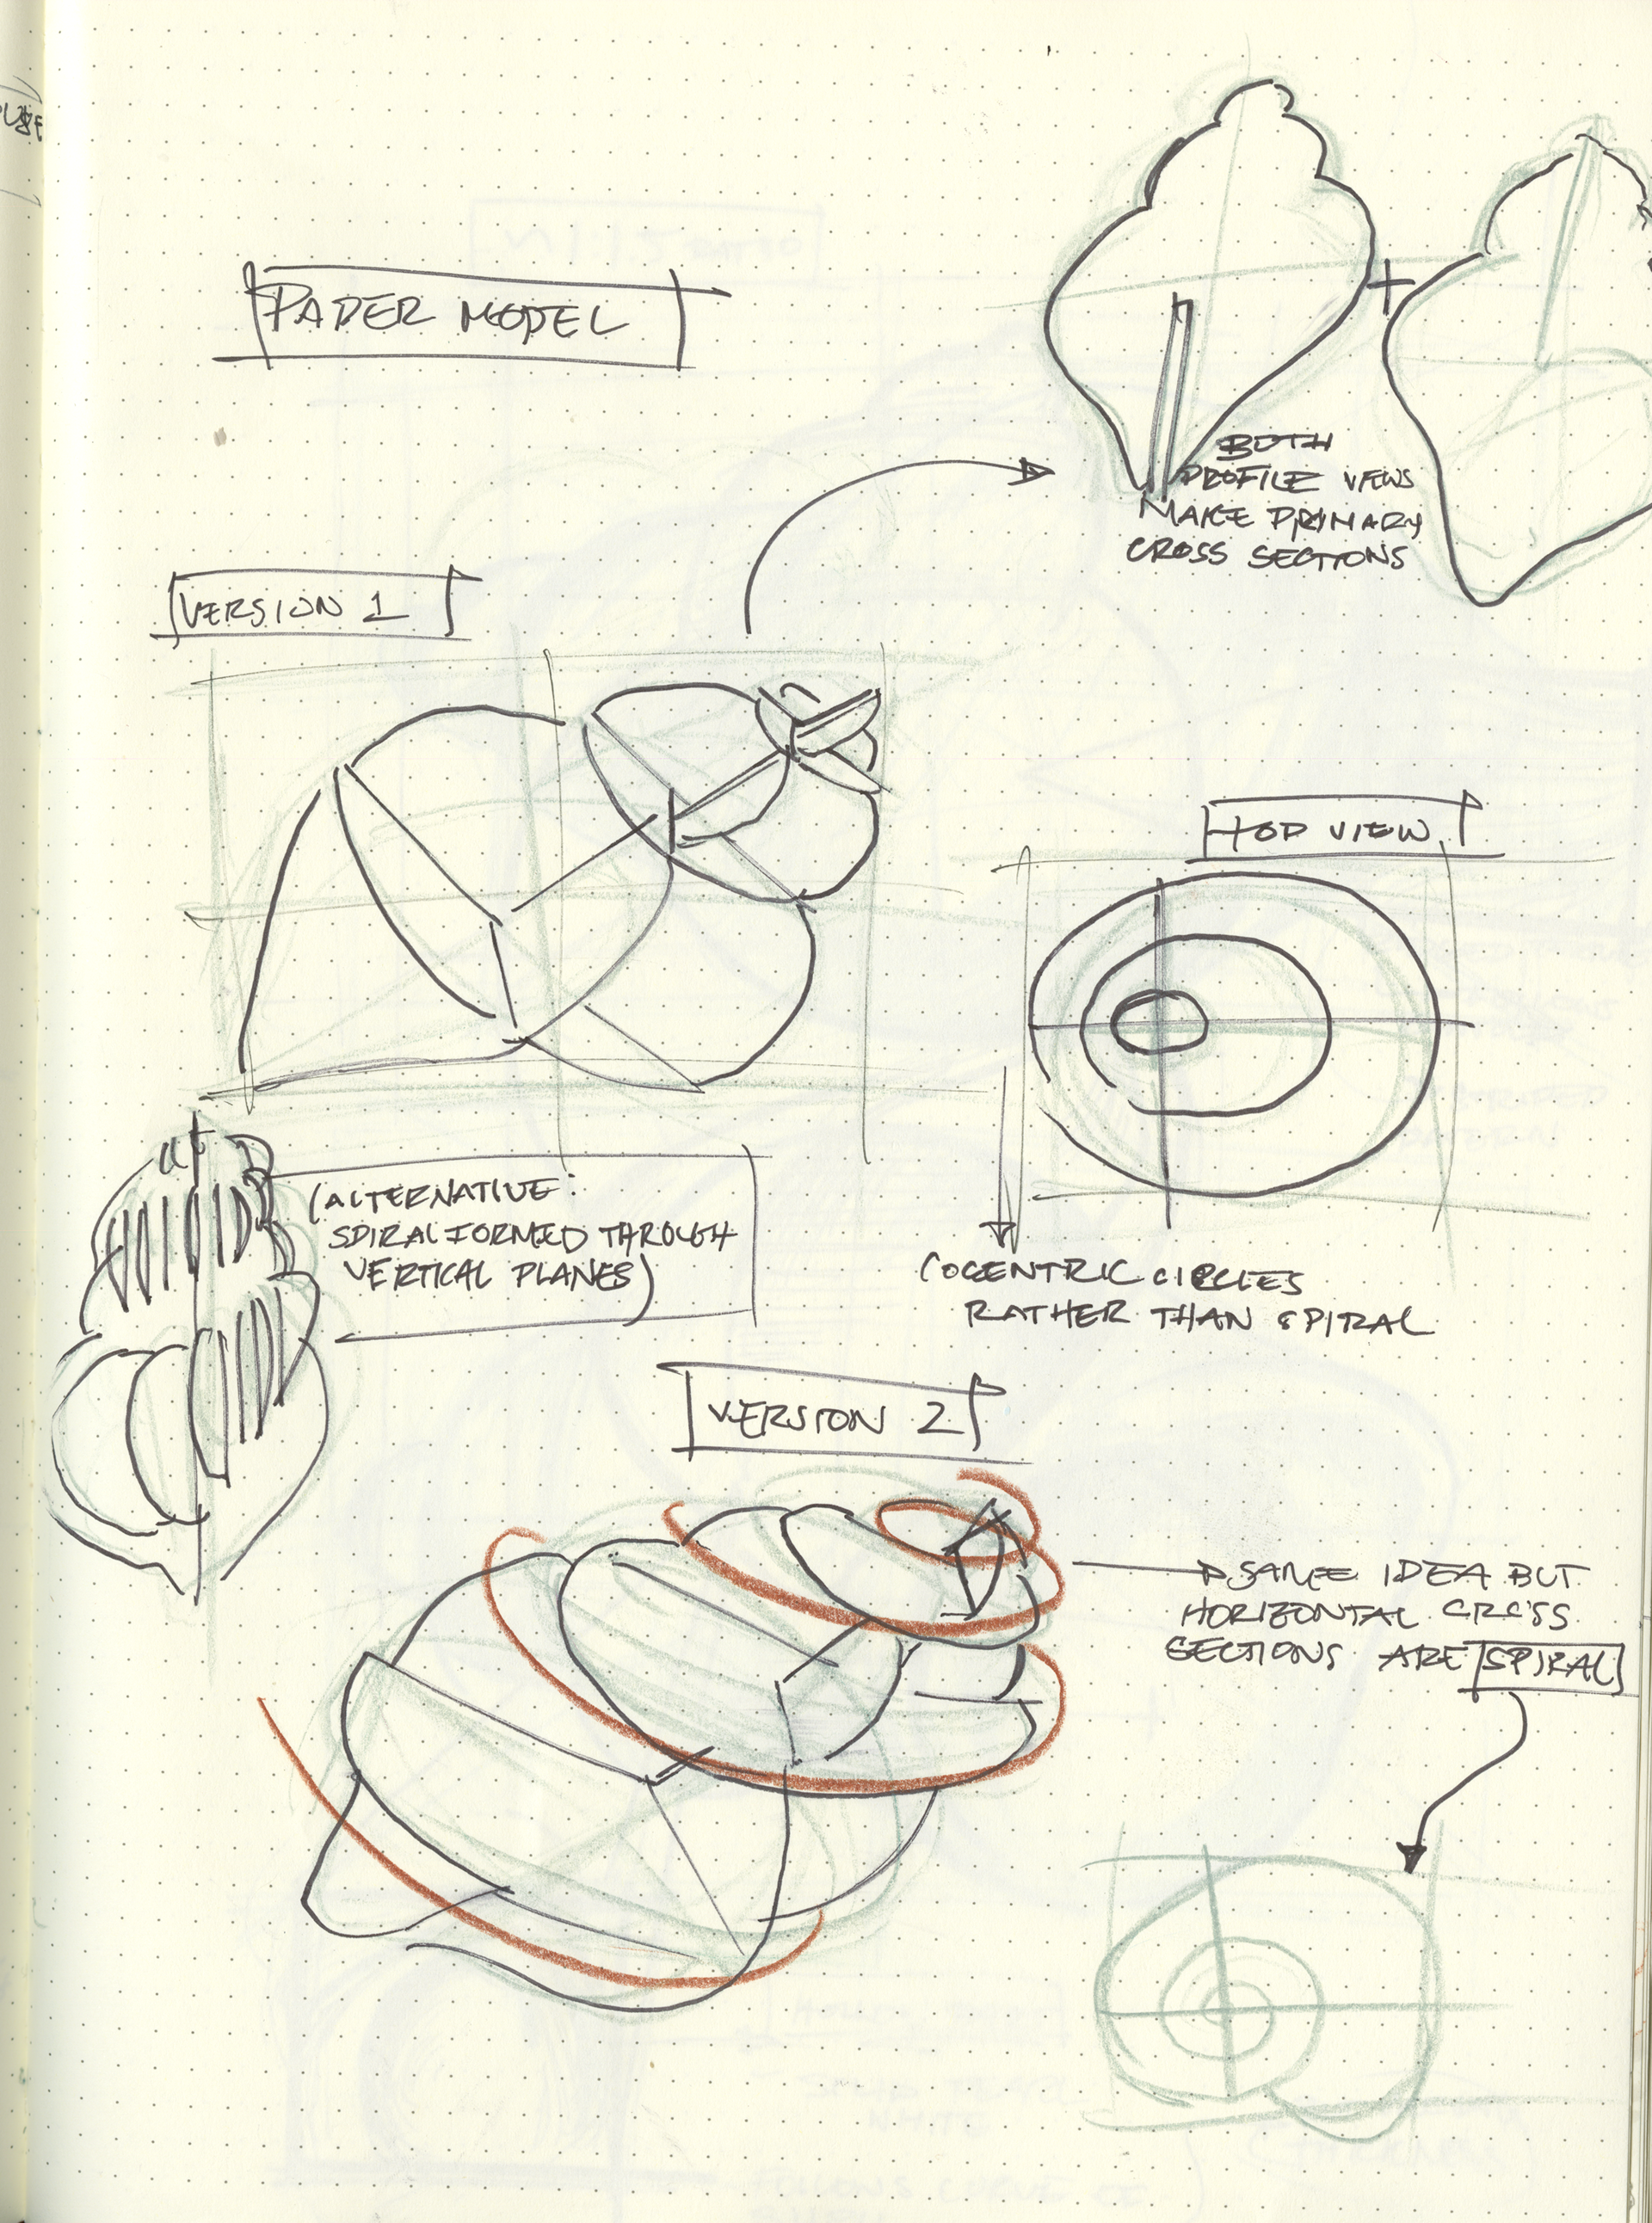 PAPER MODEL
BOTH
PROFILE VIEWS
MAKE PRIMARY
CROSS SECTIONS
VERSION 1
TOP VIEW
(ALTERNATIVE:
SPIRAL FORMED THROUGH
VERTICAL PLANES)
COCENTRIC CIRCLES
RATHER THAN SPIRAL
VERSION 2
SAME IDEA BUT
HORIZONTAL CROSS
SECTIONS ARE SPIRAL